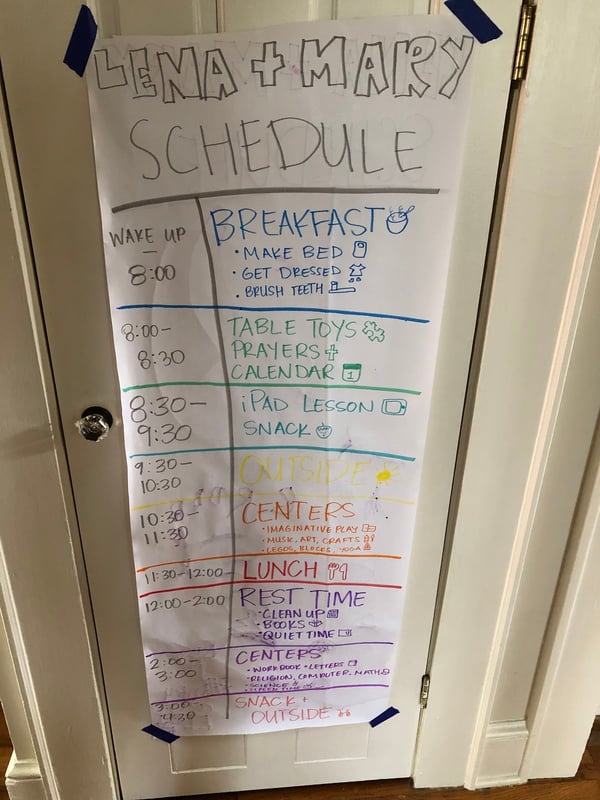 LENA + MARY
SCHEDULE
WAKE UP
-
8:00
BREAKFAST
• MAKE BED
• GET DRESSED
• BRUSH TEETH
8:00-
8:30
TABLE TOYS
PRAYERS
CALENDAR 1
8:30-
9:30
iPAD LESSON
SNACK
9:30-
10:30
OUTSIDE
10:30-
11:30
CENTERS
• IMAGINATIVE PLAY
• MUSIC, ART, CRAFTS
• LEGOS, BLOCKS, YOGA
11:30-12:00
LUNCH
12:00-2:00
REST TIME
• CLEAN UP
• BOOKS
• QUIET TIME
2:00-
3:00
CENTERS
• WORKBOOK + LETTERS
• RELIGION, COMPUTER, MATH
• SCIENCE
3:00-
4:30
SNACK +
OUTSIDE